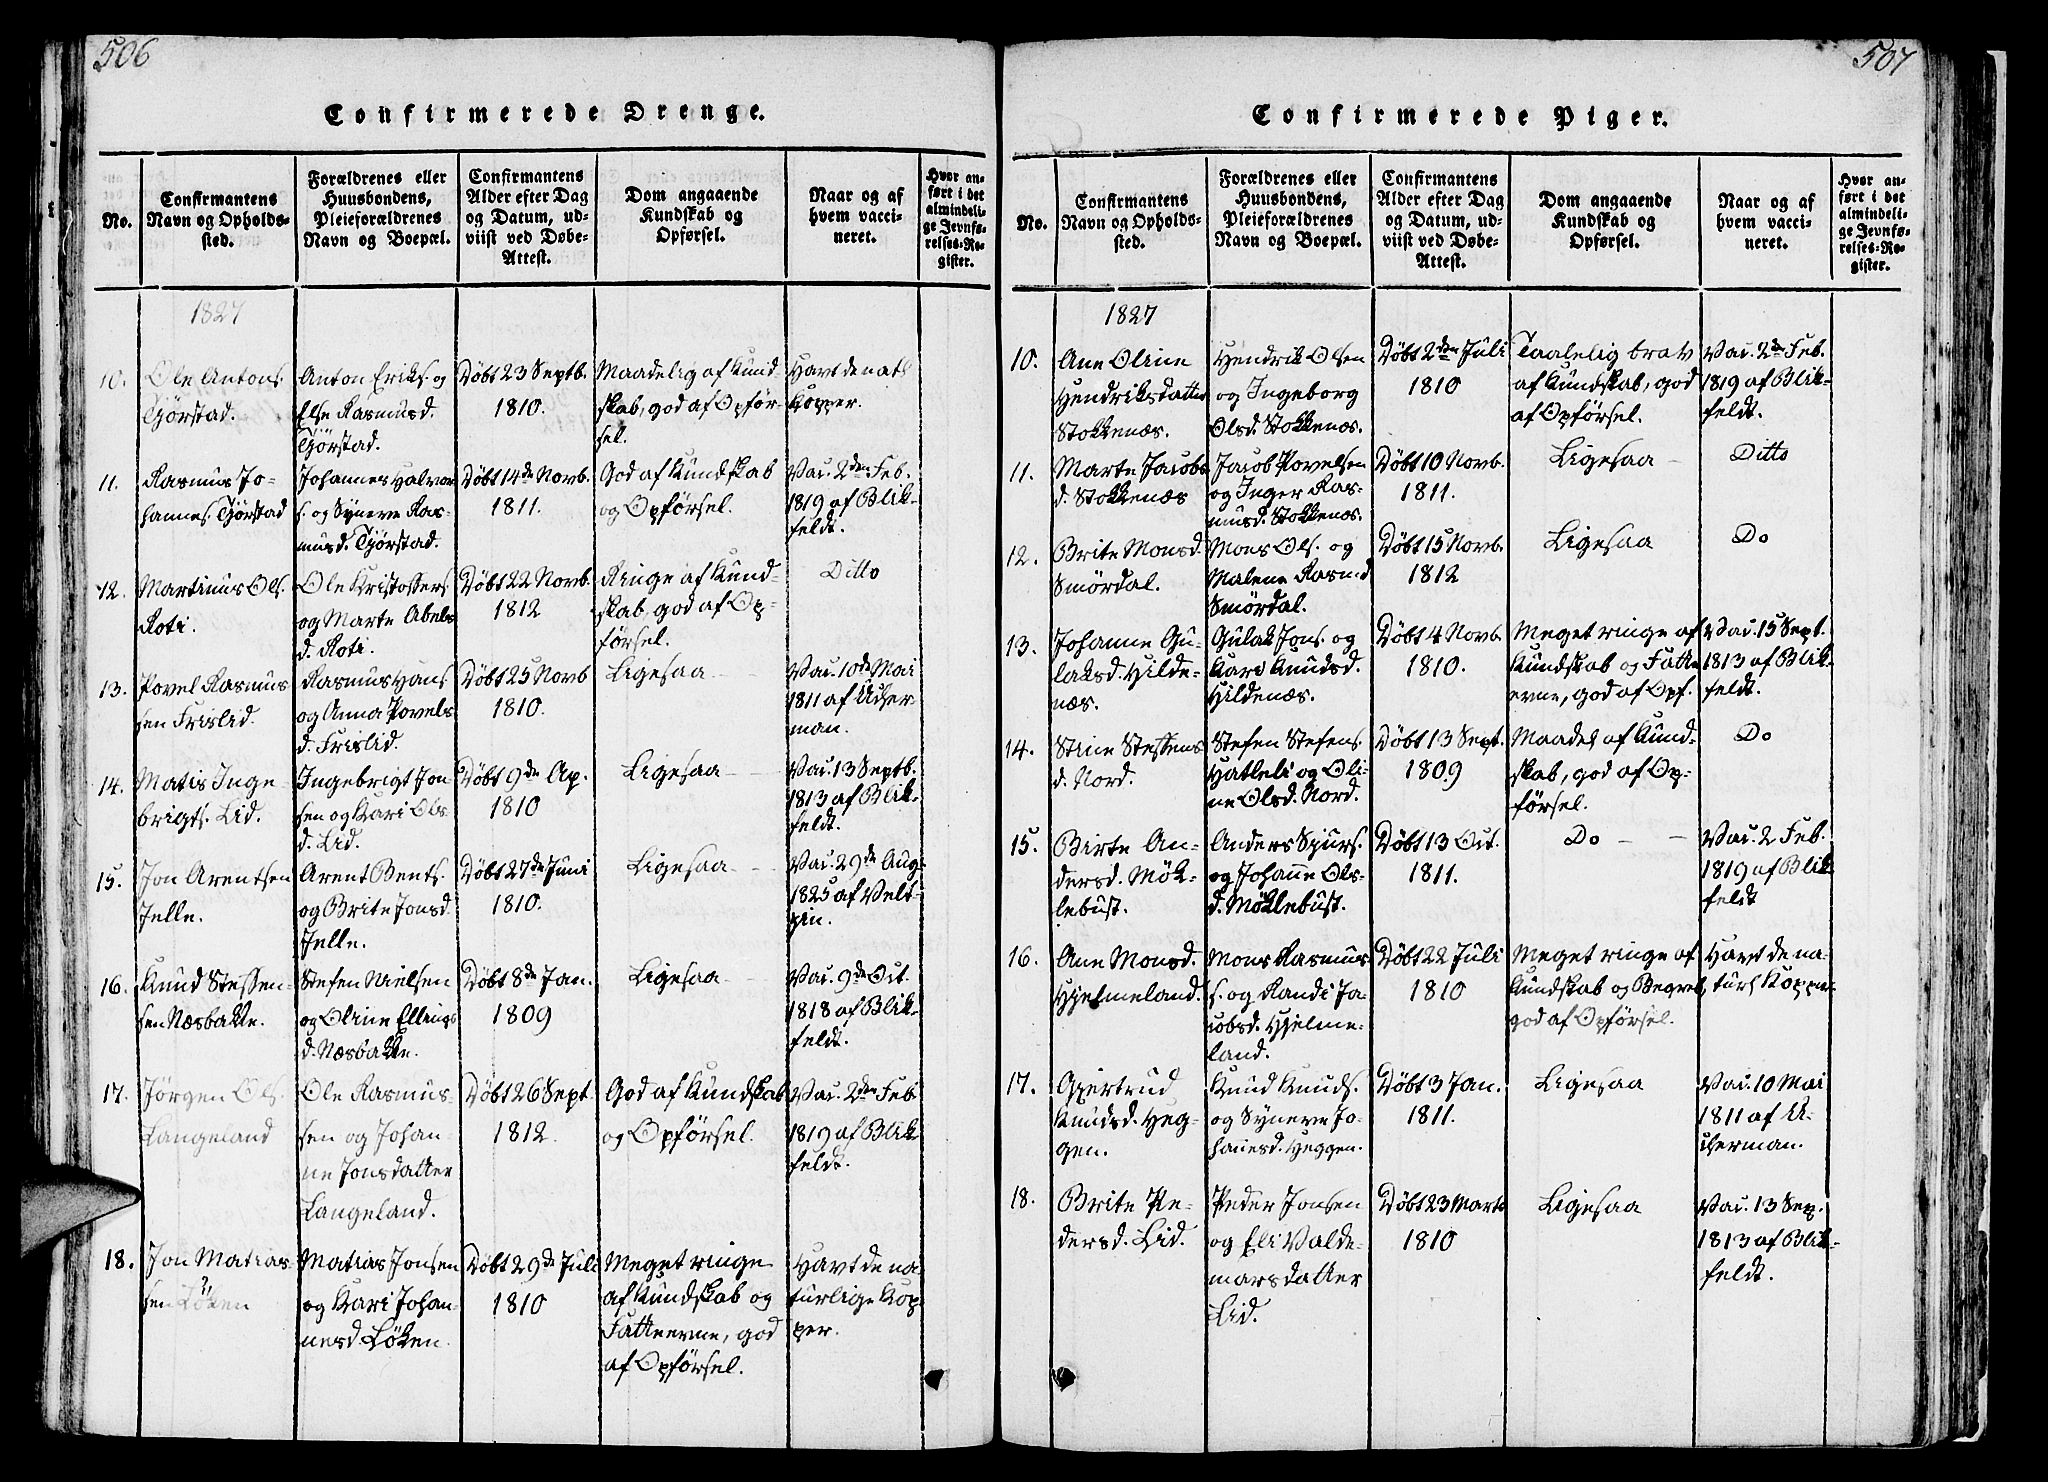 506
Confirmerede Drenge.
No.
Confirmantens
Navn og Opholds-
sted.
Forældrenes eller
Huusbondens,
Pleieforældrenes
Navn og Boepæl.
Confirmantens
Alder efter Dag
og Datum, ud-
viist ved Døbe-
Attest.
Dom angaaende
Kundskab og
Opførsel.
Naar og af
hvem vacci-
neret.
Hvor an-
ført i det
almindeli-
ge Jevnfø-
relses-Re-
gister.
1827
10.
Ole Antons.
Tjørstad.
Anton Eriks. og
Else Rasmusd.
Tjørstad.
Døbt 23 Septb.
1810.
Maadelig af Kund-
skab, god af Opfør-
sel.
Havt de natl
Kopper.
11.
Rasmus Jo-
hannes. Tjørstad
Johannes Halvor
s. og Syneve Ras-
musd. Tjørstad.
Døbt 14de Novb.
1811.
God af Kundskab
og Opførsel.
Vac. 2den Feb.
1819 af Blik-
feldt.
12.
Martinus Ols.
Roti.
Ole Kristoffers
og Marte Abels
d. Roti.
Døbt 22 Novb.
1812
Ringe af Kund-
skab, god af Op-
førsel.
Ditto
13.
Povel Rasmus
sen Frislid.
Rasmus Hans
og Anna Povels
d. Frislid.
Døbt 25 Novb
1810.
Ligesaa
Vac. 10de Mai
1811 af Ucher
man.
14.
Matis Inge
brigts. Lid.
Ingebrigt Jon
sen og Kari Ols
d. Lid.
Døbt 9de Ap.
1810
Ligesaa
Vac. 13 Septb.
1813 af Blik-
feldt.
15.
Jon Arentsen
Jelle.
Arent Bents.
og Brite Jonsd
Jelle.
Døbt 27de Juni
1810.
Ligesaa
Vac. 29de Aug.
1825 af Velt-
zin.
16.
Knud Steffen-
sen Næsbakke.
Stefen Nielsen
og Oline Ellings
d. Næsbakke.
Døbt 8de Jan.
1809
Ligesaa
Vac. 9de Oct.
1818 af Blik-
feldt.
17.
Jørgen Ols.
Langeland
Ole Rasmus-
sen og Johan-
ne Jonsdatter
Langeland.
Døbt 26 Sept.
1812.
God af Kundskab
og Opførsel.
Vac. 2den Feb
1819 af Blik
feldt.
18.
Jon Matias-
sen Løken
Matias Jonsen
og Kari Johan-
nesd. Løken.
Døbt 29de Juli
1810
Meget ringe
af Kundskab og
Fatteevne, god
af Opførsel.
Havt de na-
turlige Kop-
per.
507
Confirmerede Piger.
No.
Confirmantens
Navn og Opholds-
sted.
Forældrenes eller
Huusbondens,
Pleieforældrenes
Navn og Boepæl.
Confirmantens
Alder efter Dag
og Datum, ud-
viist ved Døbe-
Attest.
Dom angaaende
Kundskab og
Opførsel.
Naar og af
hvem vacci-
neret.
Hvor an-
ført i det
almindeli-
ge Jevnfø-
relses-Re-
gister.
1827
10.
Ane Oline
Hendriksdatter
Stokkenæs.
Hendrik Olsen
og Ingeborg
Olsd. Stokkenæs.
Døbt 2den Juli
1810
Taalelig brav
af Kundskab, god
af Opførsel.
Vac. 2de Feb.
1819 af Blik-
feldt.
11.
Marte Jacobs
d. Stokkenæs
Jacob Povelsen
og Inger Ras-
musd. Stokkenæs.
Døbt 10 Novb.
1811.
Ligesaa
Ditto
12.
Brite Monsd.
Smørdal.
Mons Ols. og
Malene Rasmd
Smørdal.
Døbt 15 Novb.
1812
Ligesaa
Do
13.
Johanne Gu-
laksd. Hilde-
næs.
Gulak Jons. og
Kari Knudsd.
Hildenæs.
Døbt 4 Novb.
1810.
Meget ringe af
Kundskab og Fatte
evne, god af Opf.
Vac. 15 Sept.
1813 af Blik-
feldt.
14.
Stine Steffens
d. Nord.
Stefen Stefens.
Hatleli og Oli-
ne Olsd. Nord.
Døbt 13 Sept.
1809
Maadel af Kund-
skab, god af Op-
førsel.
Do
15.
Birte An-
dersd. Møk-
lebust.
Anders Sjurs.
og Johane Ols-
d. Møklebust.
Døbt 13 Oct.
1811.
Do
Vac. 2 Feb.
1819 af Blik
feldt
16.
Ane Monsd.
Hjelmeland.
Mons Rasmus
s. og Randi Ja-
cobsd. Hjelme-
land.
Døbt 22 Juli
1810
Meget ringe af
Kundskab og Begreb,
god af Opførsel.
Havt de na-
turl Kopper.
17.
Gjertrud
Knudsd. Heg-
gen.
Knud Knuds.
og Syneve Jo-
hanesd. Heggen.
Døbt 3 Jan.
1811.
Ligesaa
Vac. 10 Mai
1811 af U-
cherman.
18.
Brite Pe-
dersd. Lid.
Peder Jonsen
og Eli Valde-
marsdatter
Lid.
Døbt 23 Marts
1810
Ligesaa
Vac. 13 Sep.
1813 af Blik-
feldt.